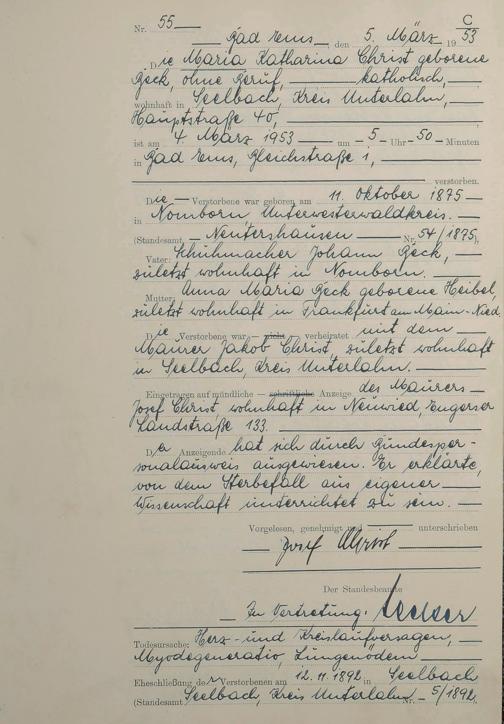 Nr. 55
C
Bad Ems, den 5. März 1953
Die Maria Katharina Christ geborene
Beck, ohne Beruf, katholisch,
wohnhaft in Seelbach, Kreis Unterlahn,
Hauptstraße 40,
ist am 4. März 1953 um 5 Uhr 50 Minuten
in Bad Ems, Gleichstraße 1,
verstorben.
Die Verstorbene war geboren am 11. Oktober 1875
in Nomborn, Unterwesterwaldkreis.
(Standesamt Nentershausen Nr. 54/1875)
Vater: Schuhmacher Johann Beck,
zuletzt wohnhaft in Nomborn.
Mutter: Anna Maria Beck geborene Heibel,
zuletzt wohnhaft in Frankfurt am Main-Nied.
Die Verstorbene war nicht verheiratet mit dem
Maurer Jakob Christ, zuletzt wohnhaft
in Seelbach, Kreis Unterlahn.
Eingetragen auf mündliche – schriftliche Anzeige des Maurers
Josef Christ, wohnhaft in Neuwied, Engerser
Landstraße 133.
Der Anzeigende hat sich durch Bundesper-
sonalausweis ausgewiesen. Er erklärte,
von dem Sterbefall aus eigener
Wissenschaft unterrichtet zu sein.
Vorgelesen, genehmigt und unterschrieben
Josef Christ
Der Standesbeamte
In Vertretung:
Todesursache: Herz- und Kreislaufversagen,
Myodegeneratio, Lungenödem
Eheschließung der Verstorbenen am 12.11.1892 in Seelbach
(Standesamt Seelbach, Kreis Unterlahn Nr. 5/1892)